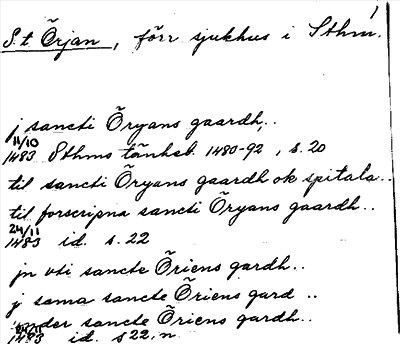 1
S:t Örjan, förr sjukhus i Sthm.
j sancti Öryans gaardh,..
11/10
1483 Sthms tänkeb. 1480-92, s. 20
til sancti Öryans gaardh ok spitala..
til forscripna sancti Öryans gaardh..
24/11
1483 id. s. 22
jn vti sancte Öriens gardh..
j sama sancte Öriens gard ..
vnder sancte Öriens gardh..
1483 id. s 22, n.